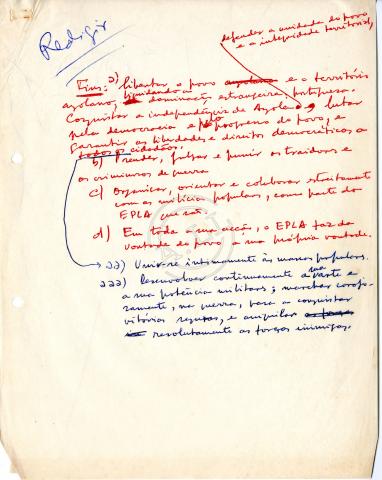 Redigir
defender a unidade do povo
e a integridade territorial,
Fins: a) libertar o povo angolano e o território
angolano, liquidando a dominação estrangeira portuguesa.
Conquistar a independência de Angola, lutar
pela democracia e pelo progresso do povo, e
garantir as liberdades e direitos democráticos a
todos os cidadãos.
b) Prender, julgar e punir os traidores e
os criminosos de guerra
c) Organizar, orientar e colaborar estreitamente
com as milícias populares, como parte do
EPLA que são.
d) Em toda a sua acção, o EPLA faz da
vontade do povo a sua própria vontade.
aa) Unir-se intimamente às massas populares.
aaa) Desenvolver continuamente a sua arte e
a sua potência militares; marchar corajo-
samente, na guerra, para a conquistar
vitórias, e aniquilar as forças
resolutamente as forças inimigas.